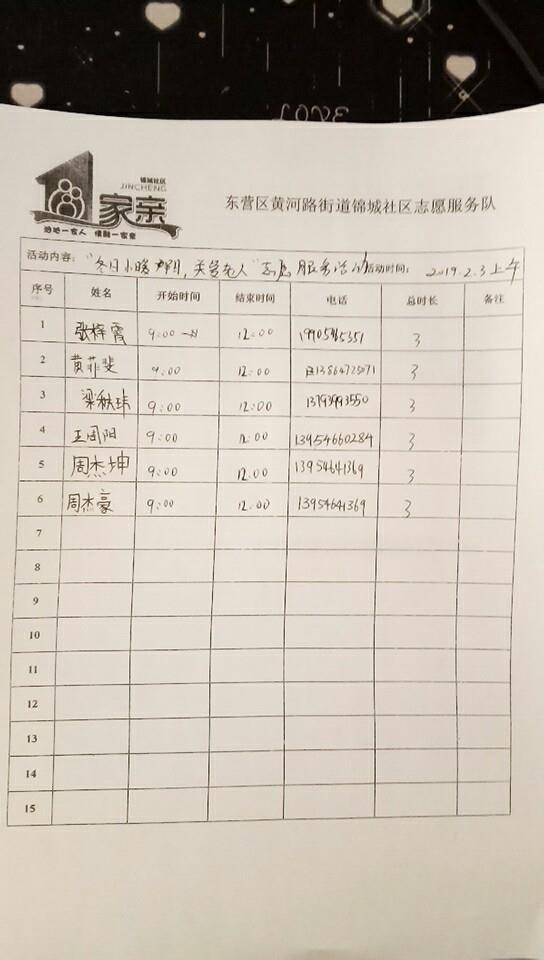 LOVE
锦城社区
JINCHENG
家亲
东营区黄河路街道锦城社区志愿服务队
活动内容： "冬日小暖阳，关爱老人"志愿服务活动 活动时间： 2019.2.3上午
序号 姓名 开始时间 结束时间 电话 总时长 备注
1 张梓霞 9:00 12:00 3
2 黄菲斐 9:00 12:00 13864725071 3
3 梁秋玮 9:00 12:00 13793993550 3
4 王周阳 9:00 12:00 13954660284 3
5 周杰坤 9:00 12:00 13954641369 3
6 周杰豪 9:00 12:00 13954641369 3
7
8
9
10
11
12
13
14
15